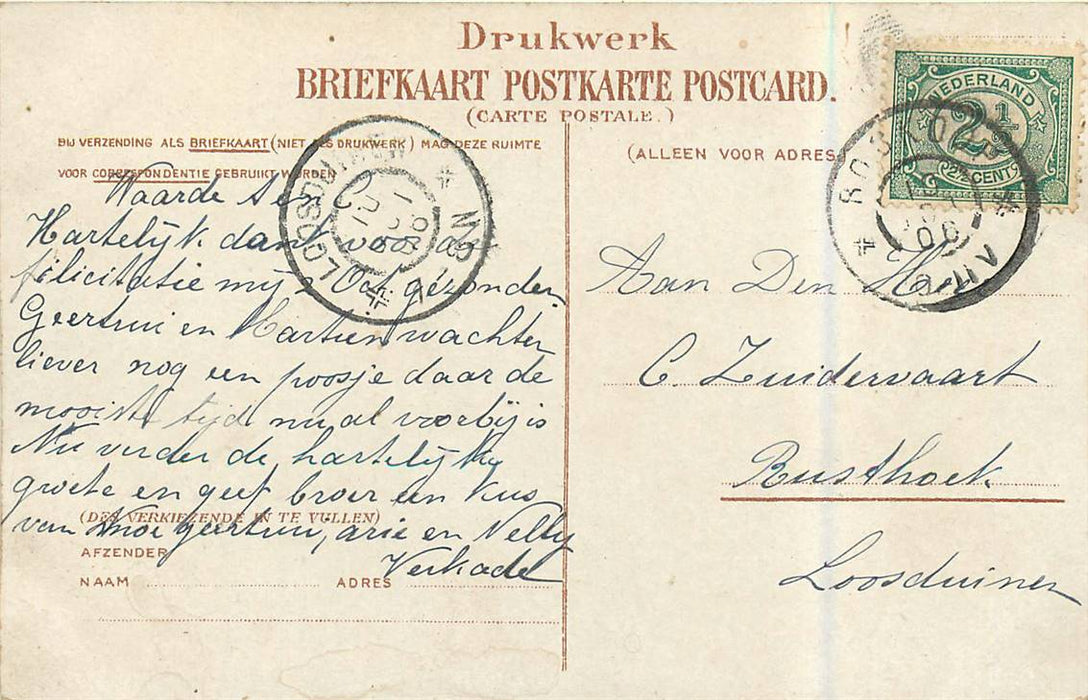 Drukwerk
BRIEFKAART POSTKARTE POSTCARD.
(CARTE POSTALE.)
BIJ VERZENDING ALS BRIEFKAART (NIET ALS DRUKWERK) MAG DEZE RUIMTE
VOOR CORRESPONDENTIE GEBRUIKT WORDEN
Waarde
Hartelijk dank voor
filicitatie mij
Geertrui en wachten
liever nog een poosje daar de
mooiste tijd nu al voorbij is
Nu verder de hartelijke
groete en geef broer een kus
van moe geertrui, arie en Nelly
Verkade
(DES VERKIEZENDE IN TE VULLEN)
AFZENDER
NAAM ADRES
(ALLEEN VOOR ADRES
Aan Den Heer
C. Zuidervaart
Rusthoek
Loosduinen
NEDERLAND
2½
2½ CENT
LOOSDUINEN